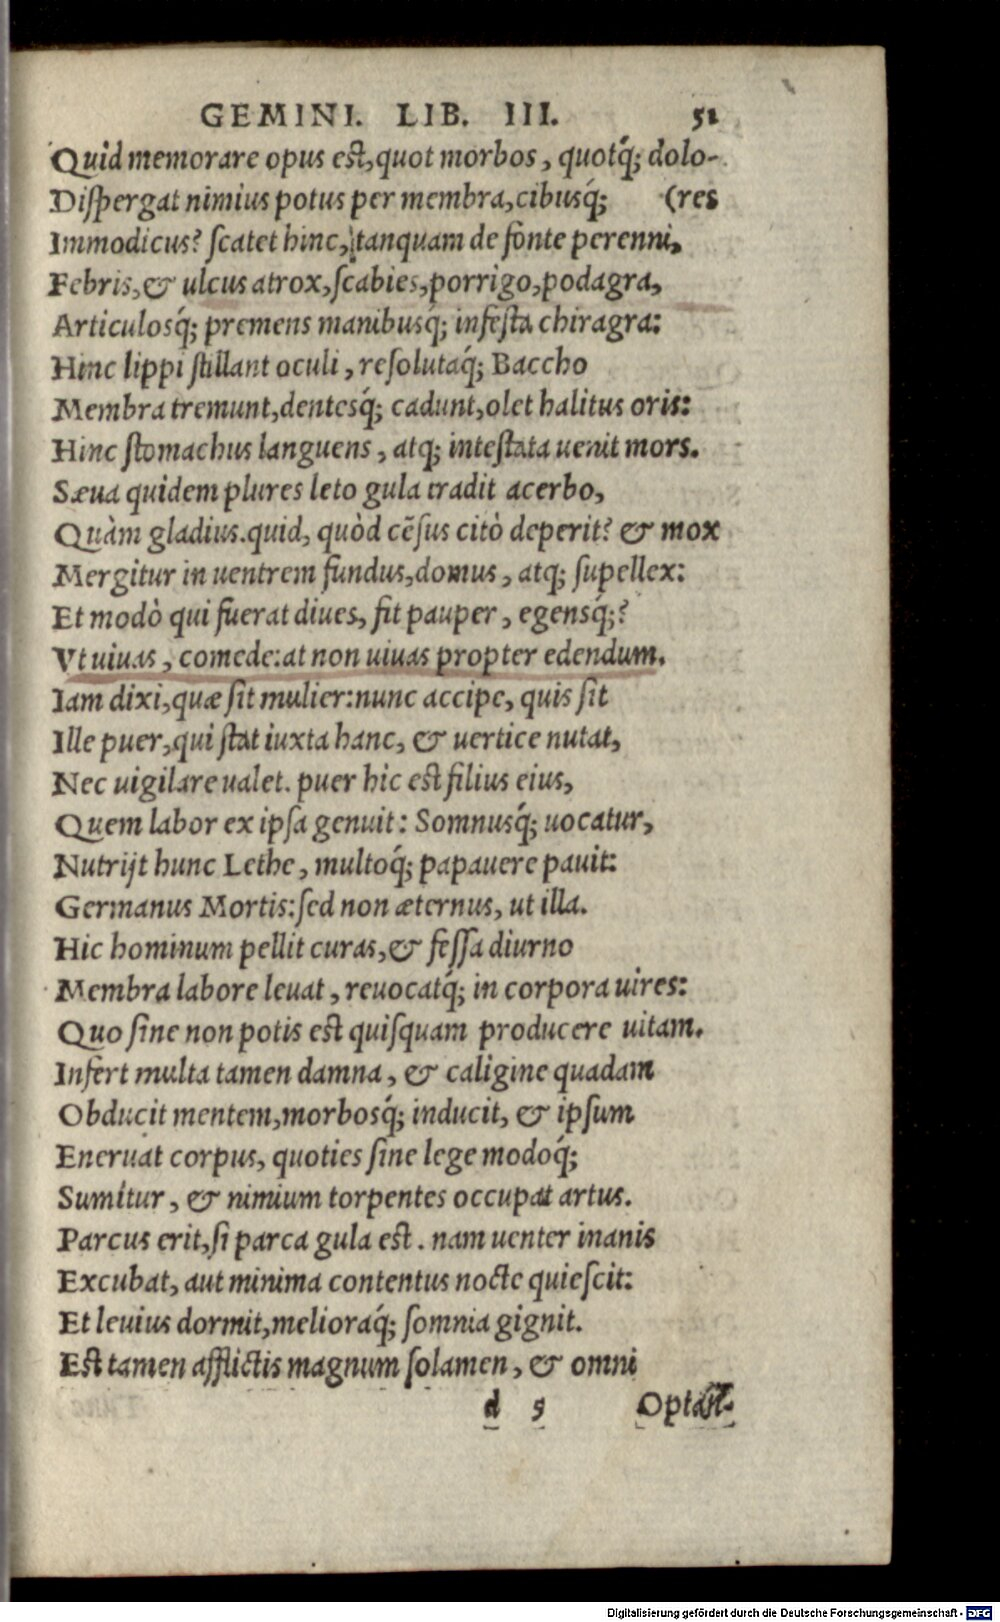 GEMINI. LIB. III. 51
Quid memorare opus est, quot morbos, quotq́; dolo-
Dispergat nimius potus per membra, cibusq́; (res
Immodicus? scatet hinc, tanquam de fonte perenni,
Febris, & ulcus atrox, scabies, porrigo, podagra,
Articulosq́; premens manibusq́; infesta chiragra:
Hinc lippi stillant oculi, resolutaq́; Baccho
Membra tremunt, dentesq́; cadunt, olet halitus oris:
Hinc stomachus languens, atq; intestata uenit mors.
Sæua quidem plures leto gula tradit acerbo,
Quàm gladius. quid, quòd cēsus citò deperit? & mox
Mergitur in uentrem fundus, domus, atq; supellex:
Et modò qui fuerat diues, fit pauper, egensq́;?
Vt uiuas, comede: at non uiuas propter edendum.
Iam dixi, quæ sit mulier: nunc accipe, quis sit
Ille puer, qui stat iuxta hanc, & uertice nutat,
Nec uigilare ualet. puer hic est filius eius,
Quem labor ex ipsa genuit: Somnusq́; uocatur,
Nutrijt hunc Lethe, multoq́; papauere pauit:
Germanus Mortis: sed non æternus, ut illa.
Hic hominum pellit curas, & fessa diurno
Membra labore leuat, reuocatq́; in corpora uires:
Quo sine non potis est quisquam producere uitam.
Infert multa tamen damna, & caligine quadam
Obducit mentem, morbosq́; inducit, & ipsum
Eneruat corpus, quoties sine lege modoq́;
Sumitur, & nimium torpentes occupat artus.
Parcus erit, si parca gula est. nam uenter inanis
Excubat, aut minima contentus nocte quiescit:
Et leuius dormit, melioraq́; somnia gignit.
Est tamen afflictis magnum solamen, & omni
d 5 Optan-
Digitalisierung gefördert durch die Deutsche Forschungsgemeinschaft - DFG